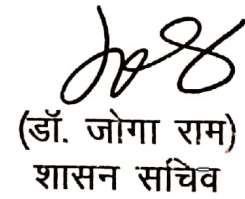 (डॉ. जोगा राम)
शासन सचिव